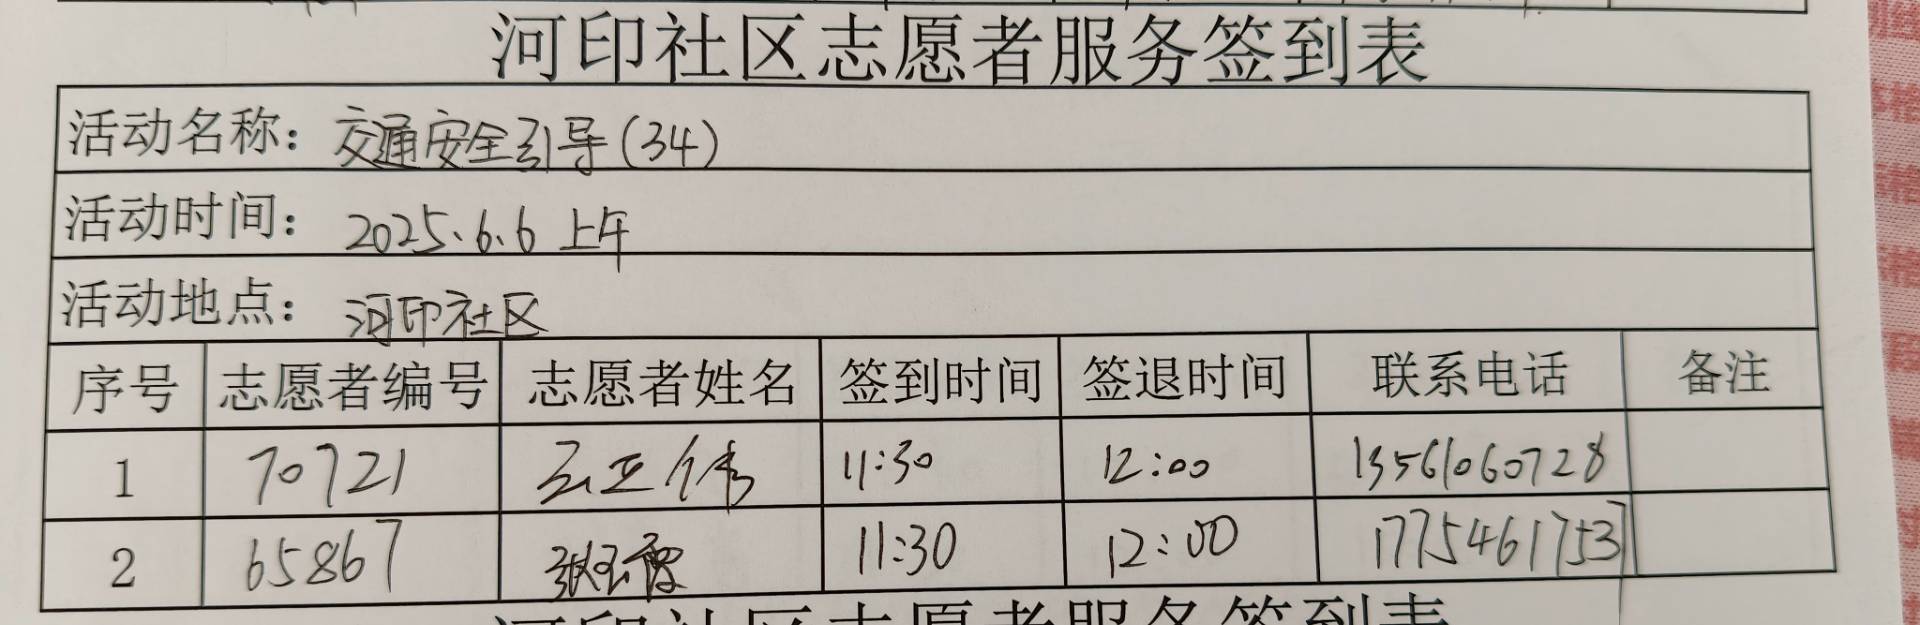 河印社区志愿者服务签到表
活动名称：交通安全引导(34)
活动时间：2025.6.6 上午
活动地点：河印社区
序号 志愿者编号 志愿者姓名 签到时间 签退时间 联系电话 备注
1 70721 11:30 12:00 13561060728
2 65867 11:30 12:00 17754617537
河印社区志愿者服务签到表